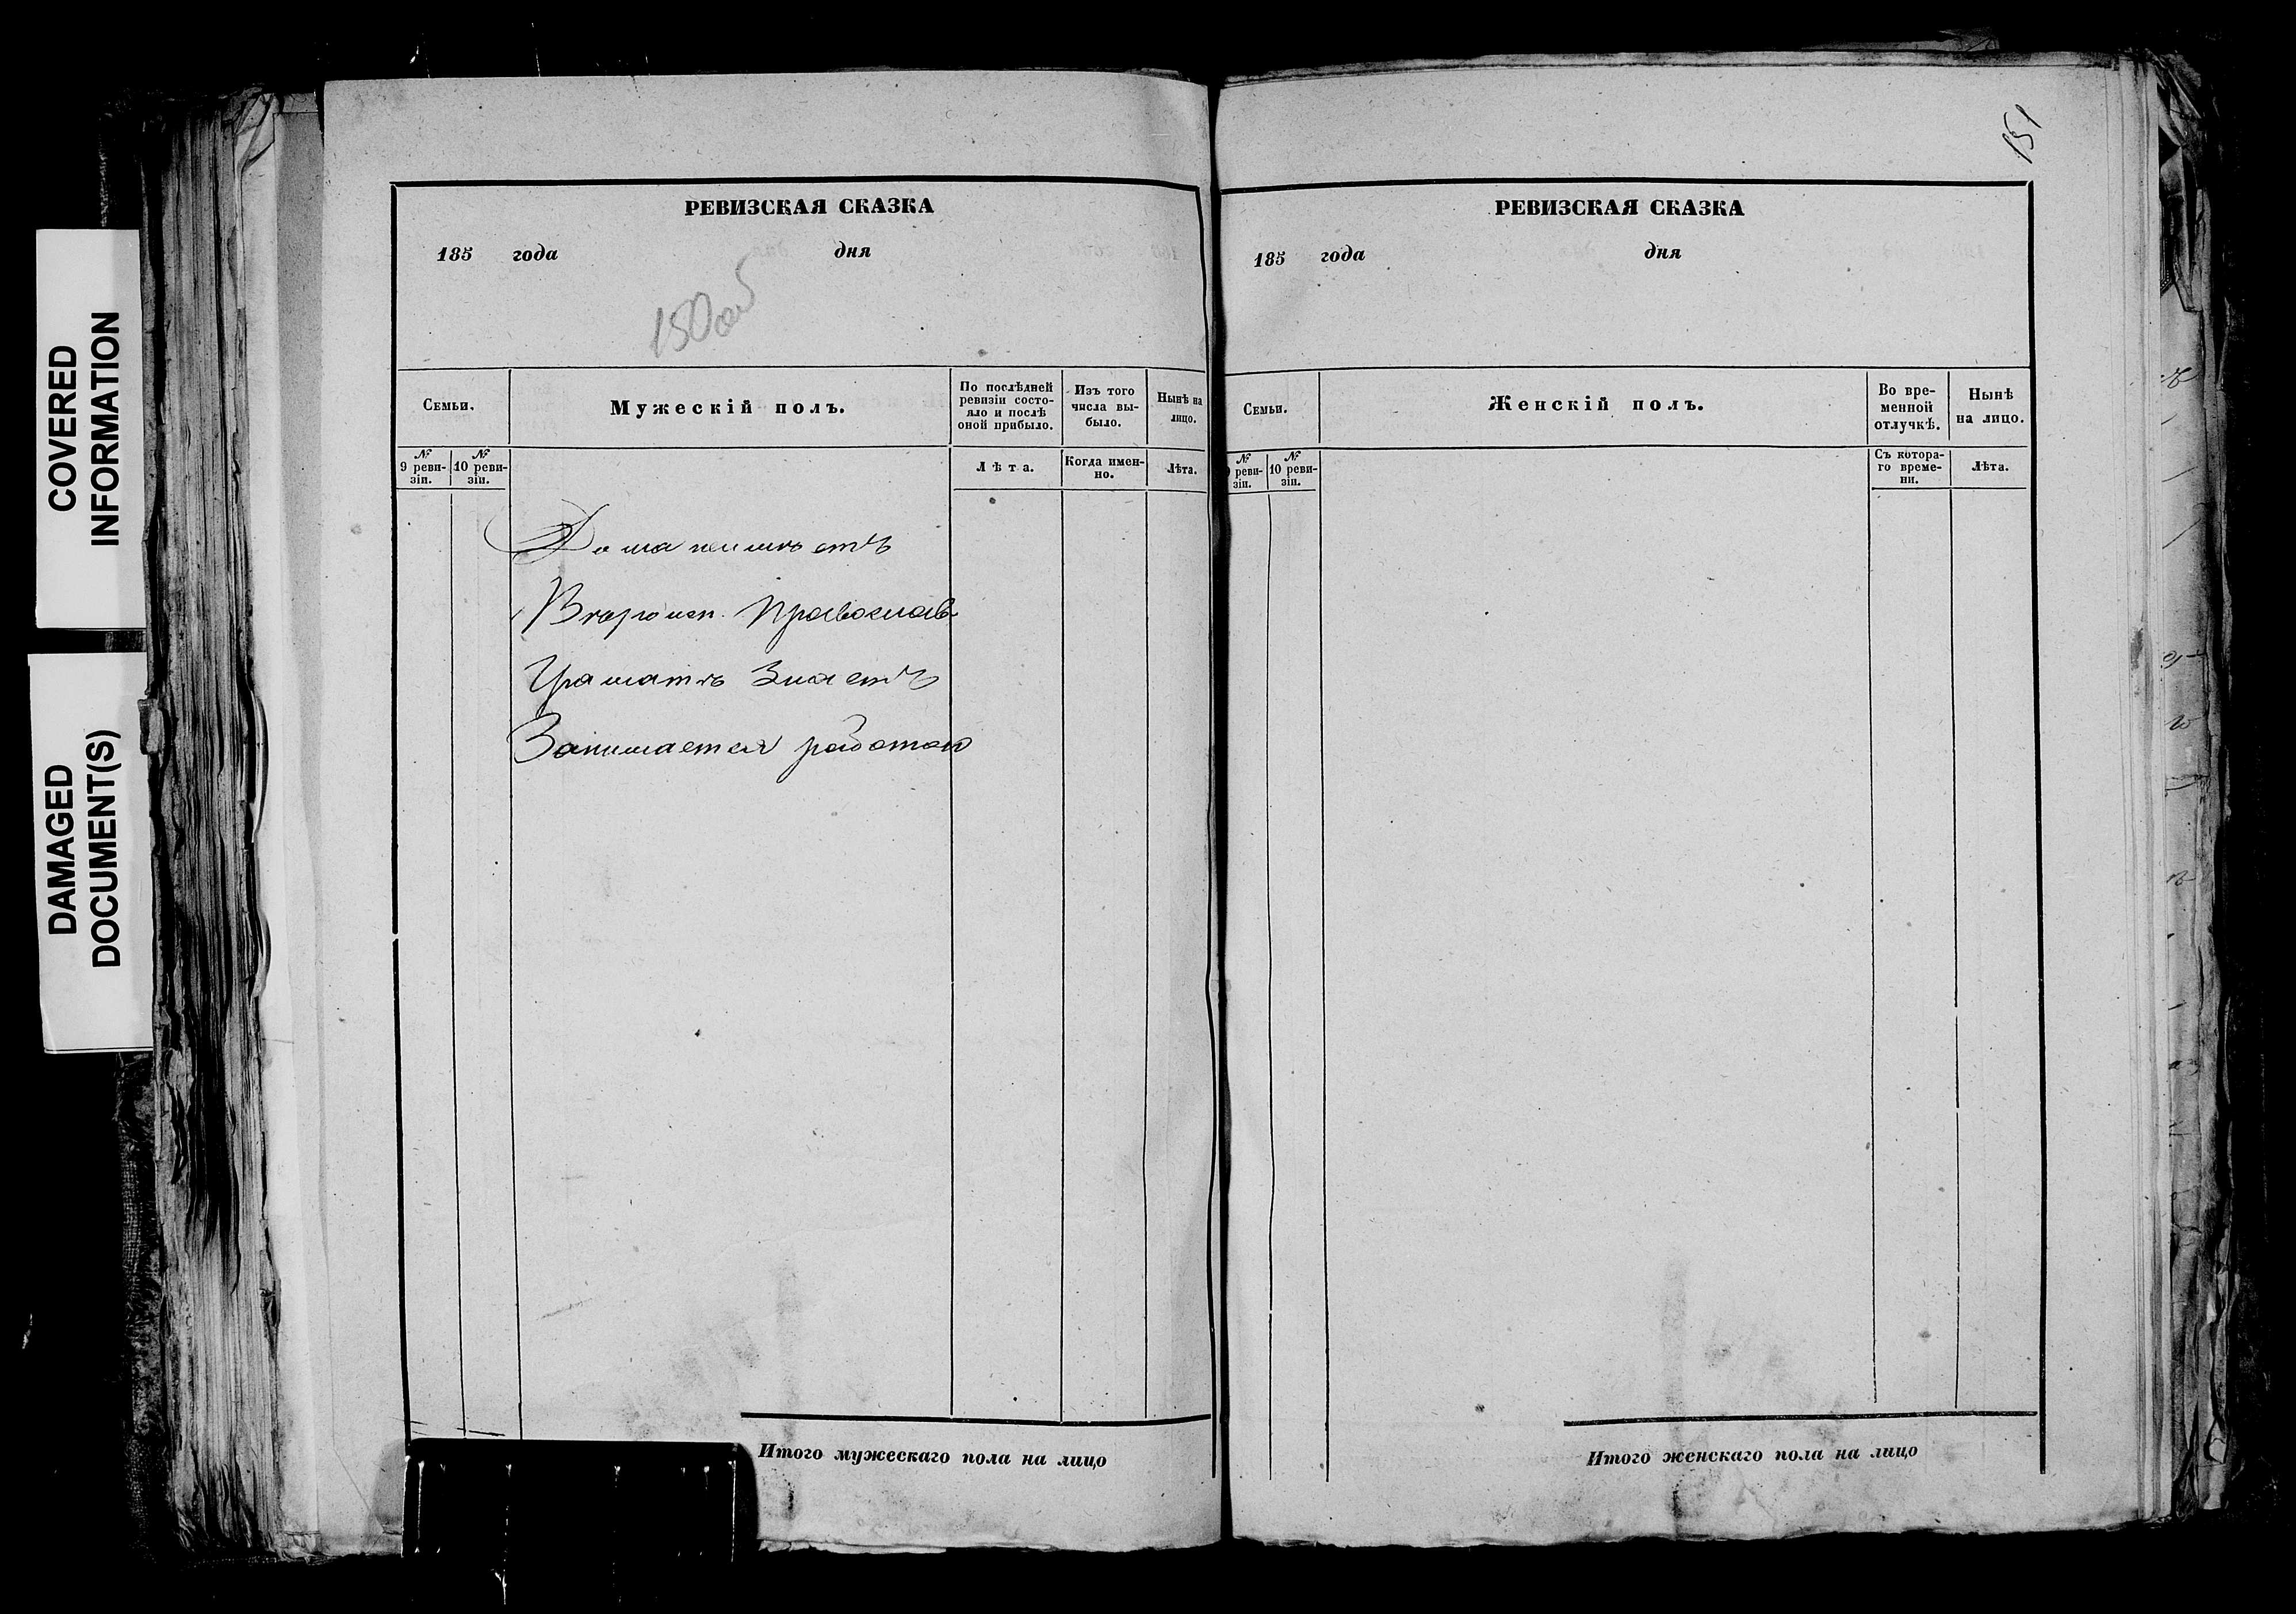 COVERED
INFORMATION
DAMAGED
DOCUMENT(S)
РЕВИЗСКАЯ СКАЗКА
185 года дня
150об
Семьи.
Мужескій полъ.
По послѣдней
ревизіи состо-
яло и послѣ
оной прибыло.
Изъ того
числа вы-
было.
Нынѣ на
лицо.
№
9 реви-
зіи.
№
10 реви-
зіи.
Лѣта.
Когда имен-
но.
Лѣта.
Дома неимѣетъ
Вѣроисп. Православ
Граматѣ Знаетъ
Занимается работою
Итого мужескаго пола на лицо
151
РЕВИЗСКАЯ СКАЗКА
185 года дня
Семьи.
Женскій полъ.
Во вре-
менной
отлучкѣ.
Нынѣ
на лицо.
№
реви-
зіи.
№
10 реви-
зіи.
Съ котора-
го време-
ни.
Лѣта.
Итого женскаго пола на лицо